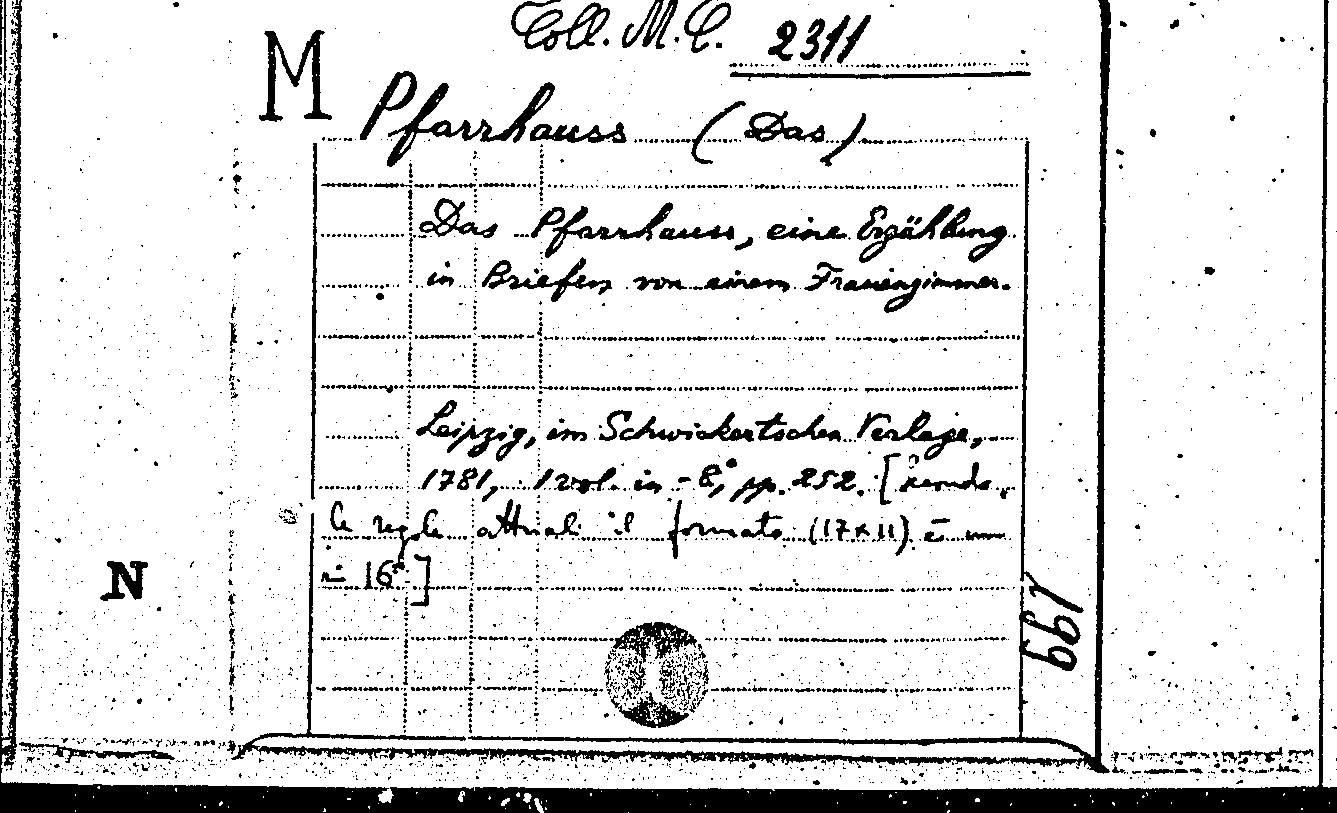 Coll. M. C. 2311
M
Pfarrhauss (Das)
Das Pfarrhauss, eine Erzählung
in Briefen von einem Frauenzimmer.
Leipzig, im Schwickertschen Verlage,
1781, 1 vol. in -8°, pp. 252. [
le regole attuali il formato (17x11) è un
in 16°]
N
199